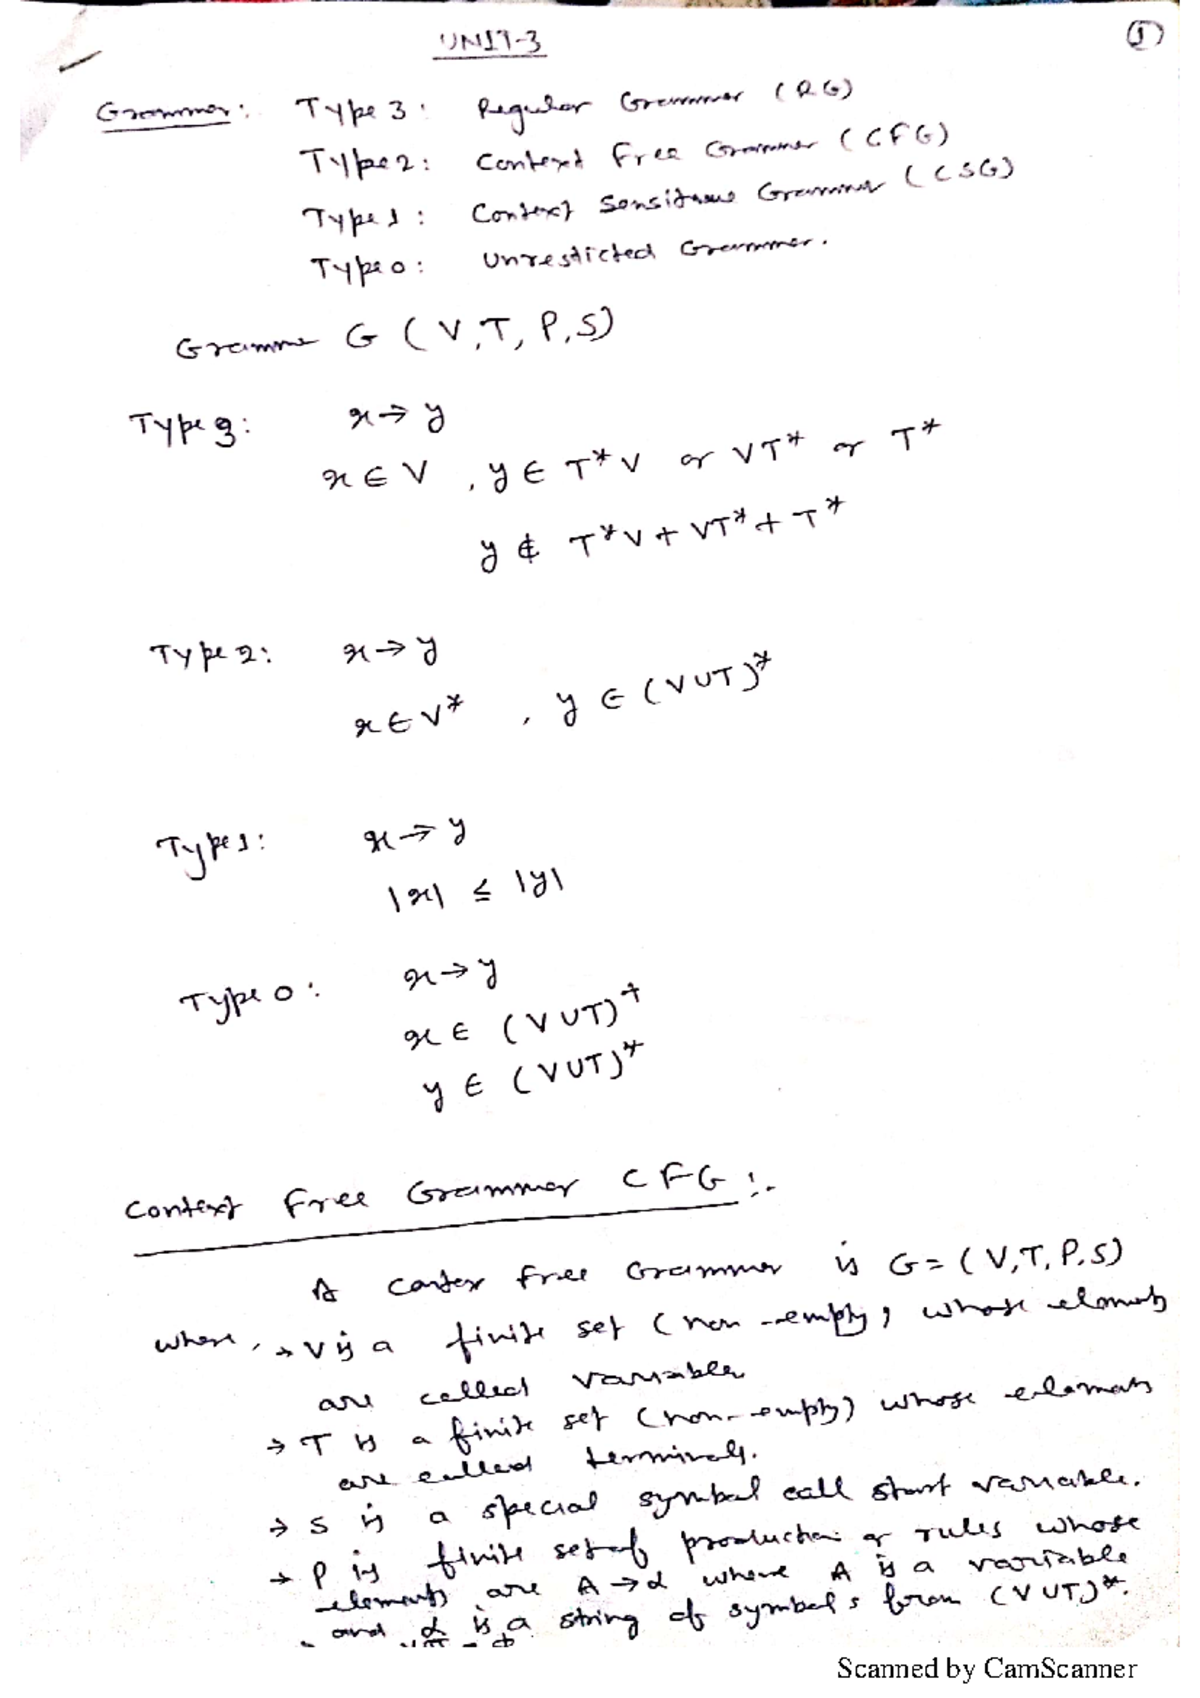 UNIT-3
1
Grammer: Type 3: Regular Grammer (RG)
Type 2: Context Free Grammer (CFG)
Type 1: Context Sensitive Grammer (CSG)
Type 0: Unresticted Grammer.
Gramme G (V,T,P,S)
Type 3: x→y
x ∈ V , y ∈ T*V or VT* or T*
y ∉ T*V + VT* + T*
Type 2: x→y
x ∈ V* , y ∈ (VUT)*
Type 1: x→y
|x| ≤ |y|
Type 0: x→y
x ∈ (VUT)+
y ∈ (VUT)*
Context Free Grammer CFG :-
A contex free Grammer is G = (V,T,P,S)
where, → V is a finite set (non-empty) whose elements
are called variable
→ T is a finite set (non-empty) whose elements
are called terminals.
→ S is a special symbol call start variable.
→ P is finite set of production or rules whose
elements are A→α where A is a variable
and α is a string of symbols from (VUT)*.
Scanned by CamScanner